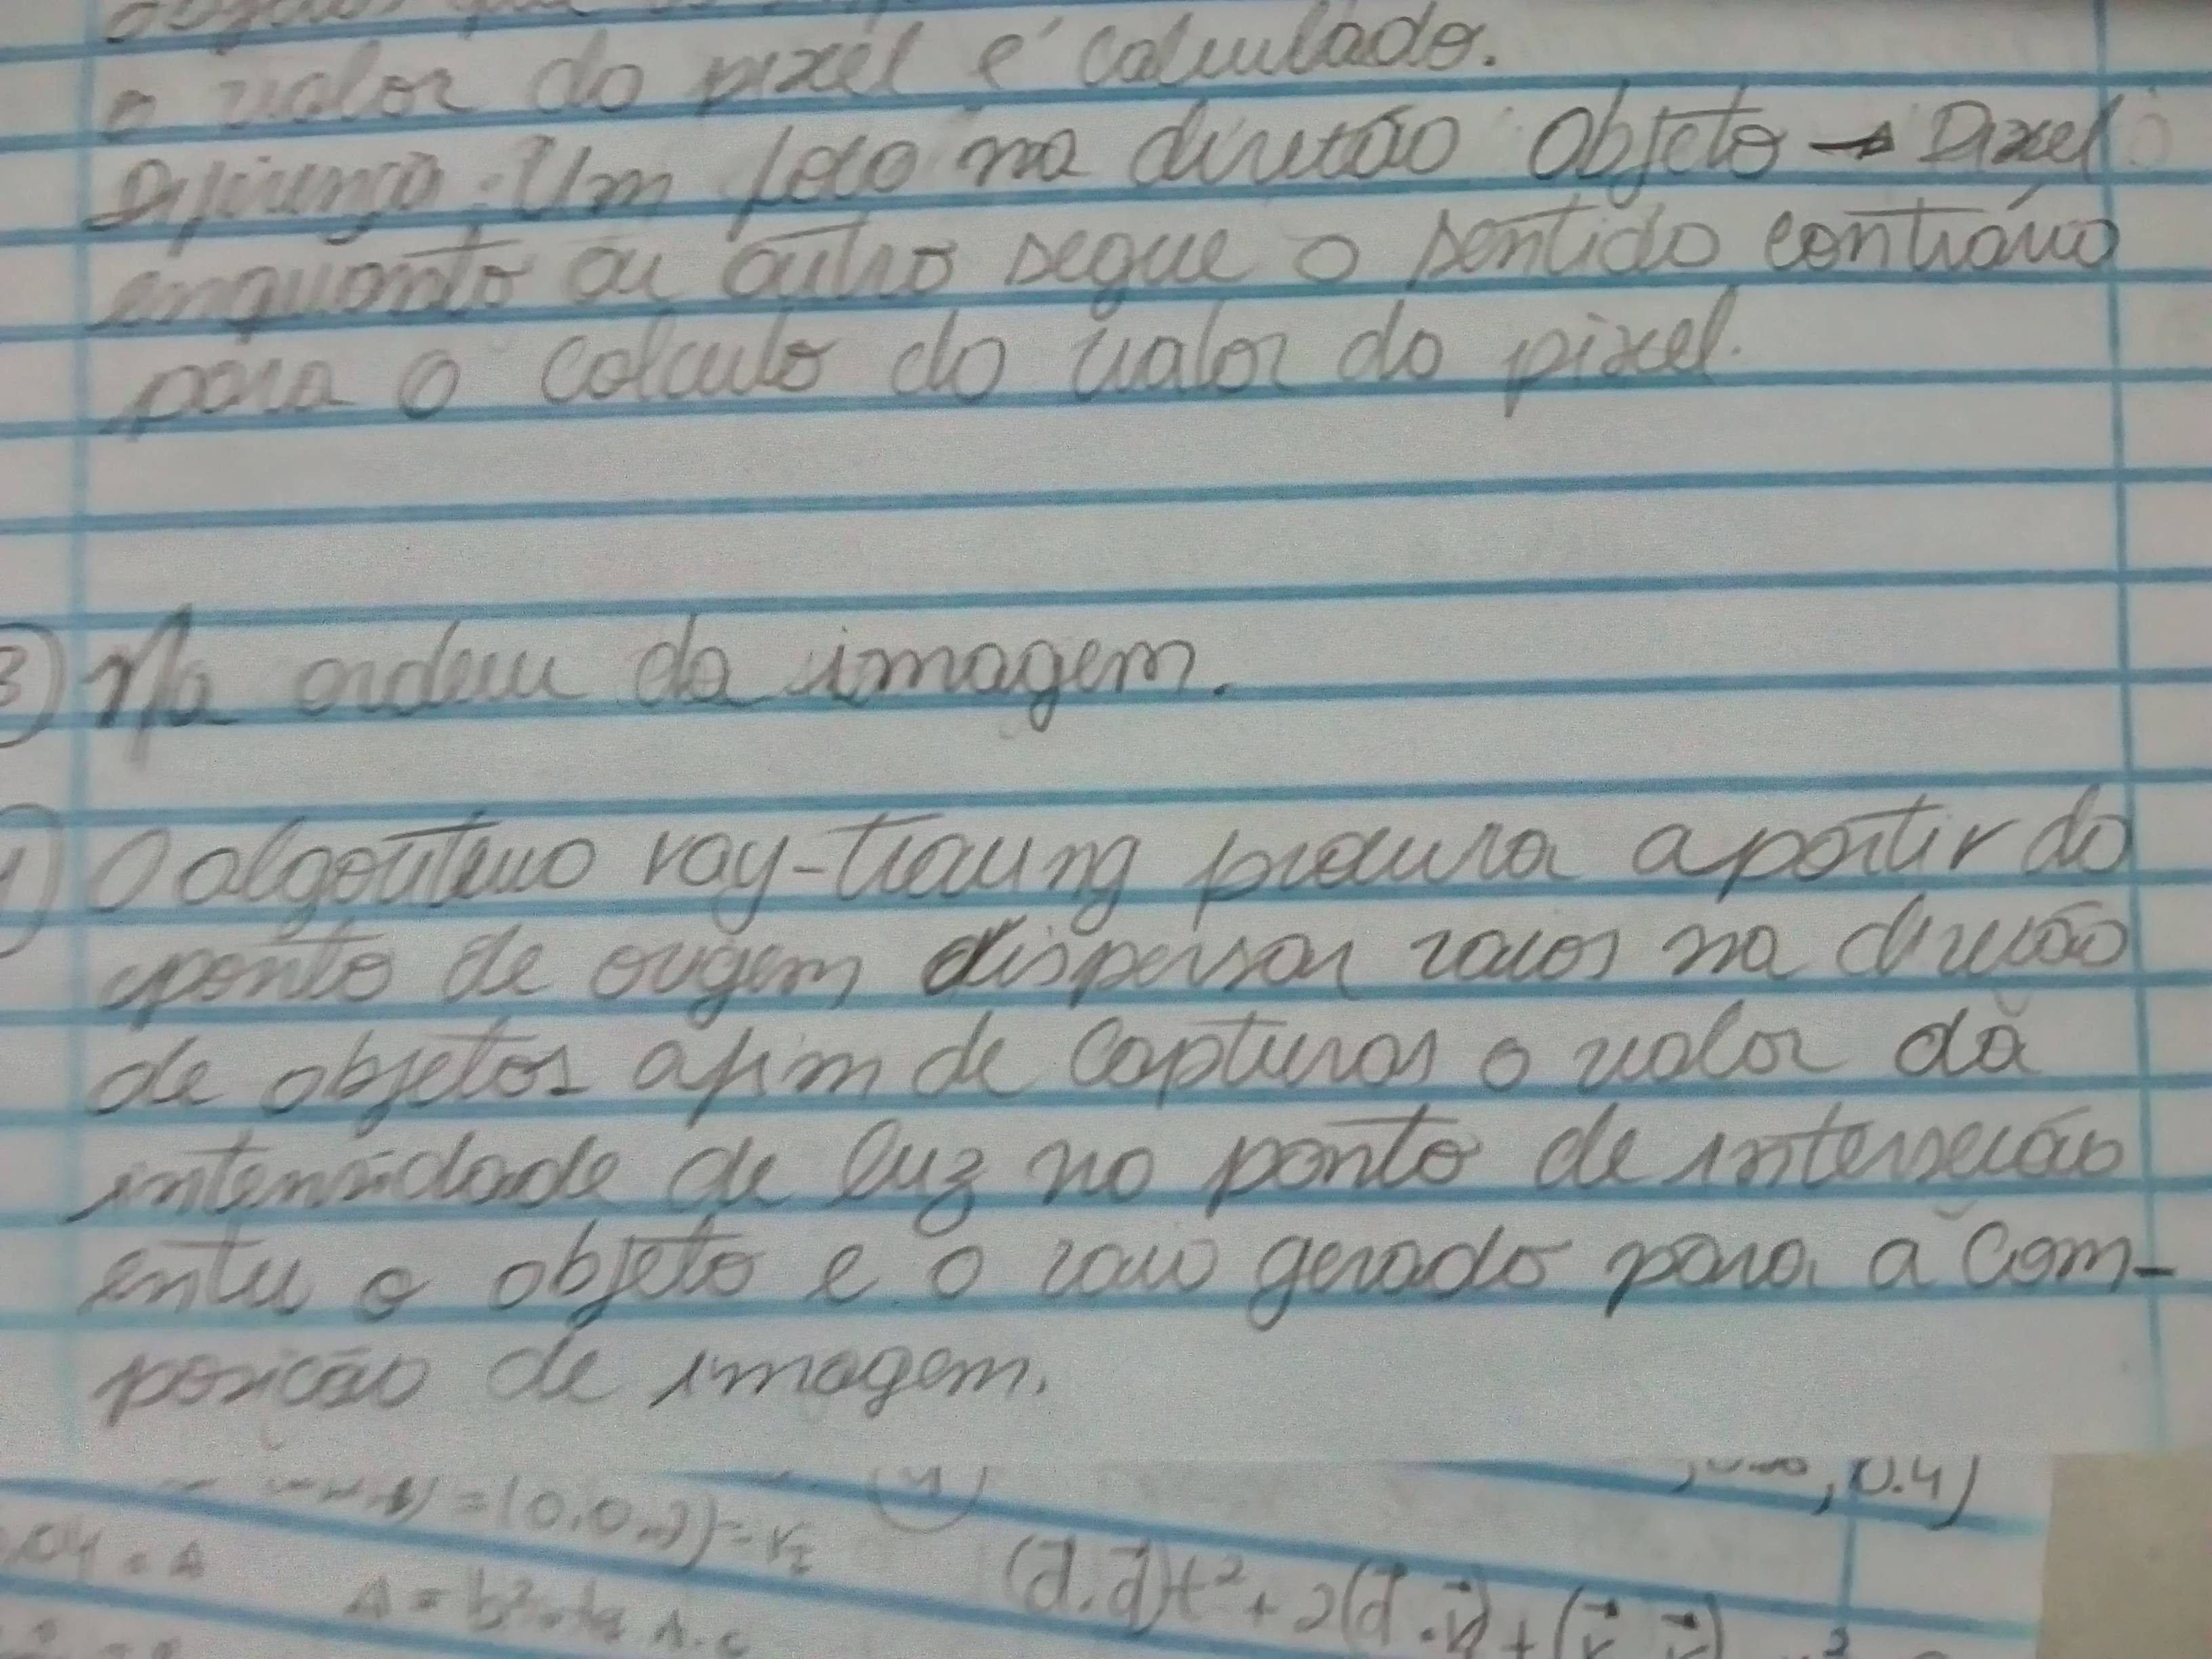 o valor do pixel é calculado.
Diferença: Um foco na direção Objeto → Pixel
enquanto ou outro segue o sentido contrário
para o calculo do valor do pixel.
3) Na ordem da imagem.
O algoritmo ray-tracing procura a partir do
ponto de origem dispersar raios na direção
de objetos afim de capturar o valor da
intensidade de luz no ponto de interseção
entre o objeto e o raio gerado para a com-
posição de imagem.
, 0.4)
= (0,0,
(d⃗.d⃗)t² + 2(d⃗.